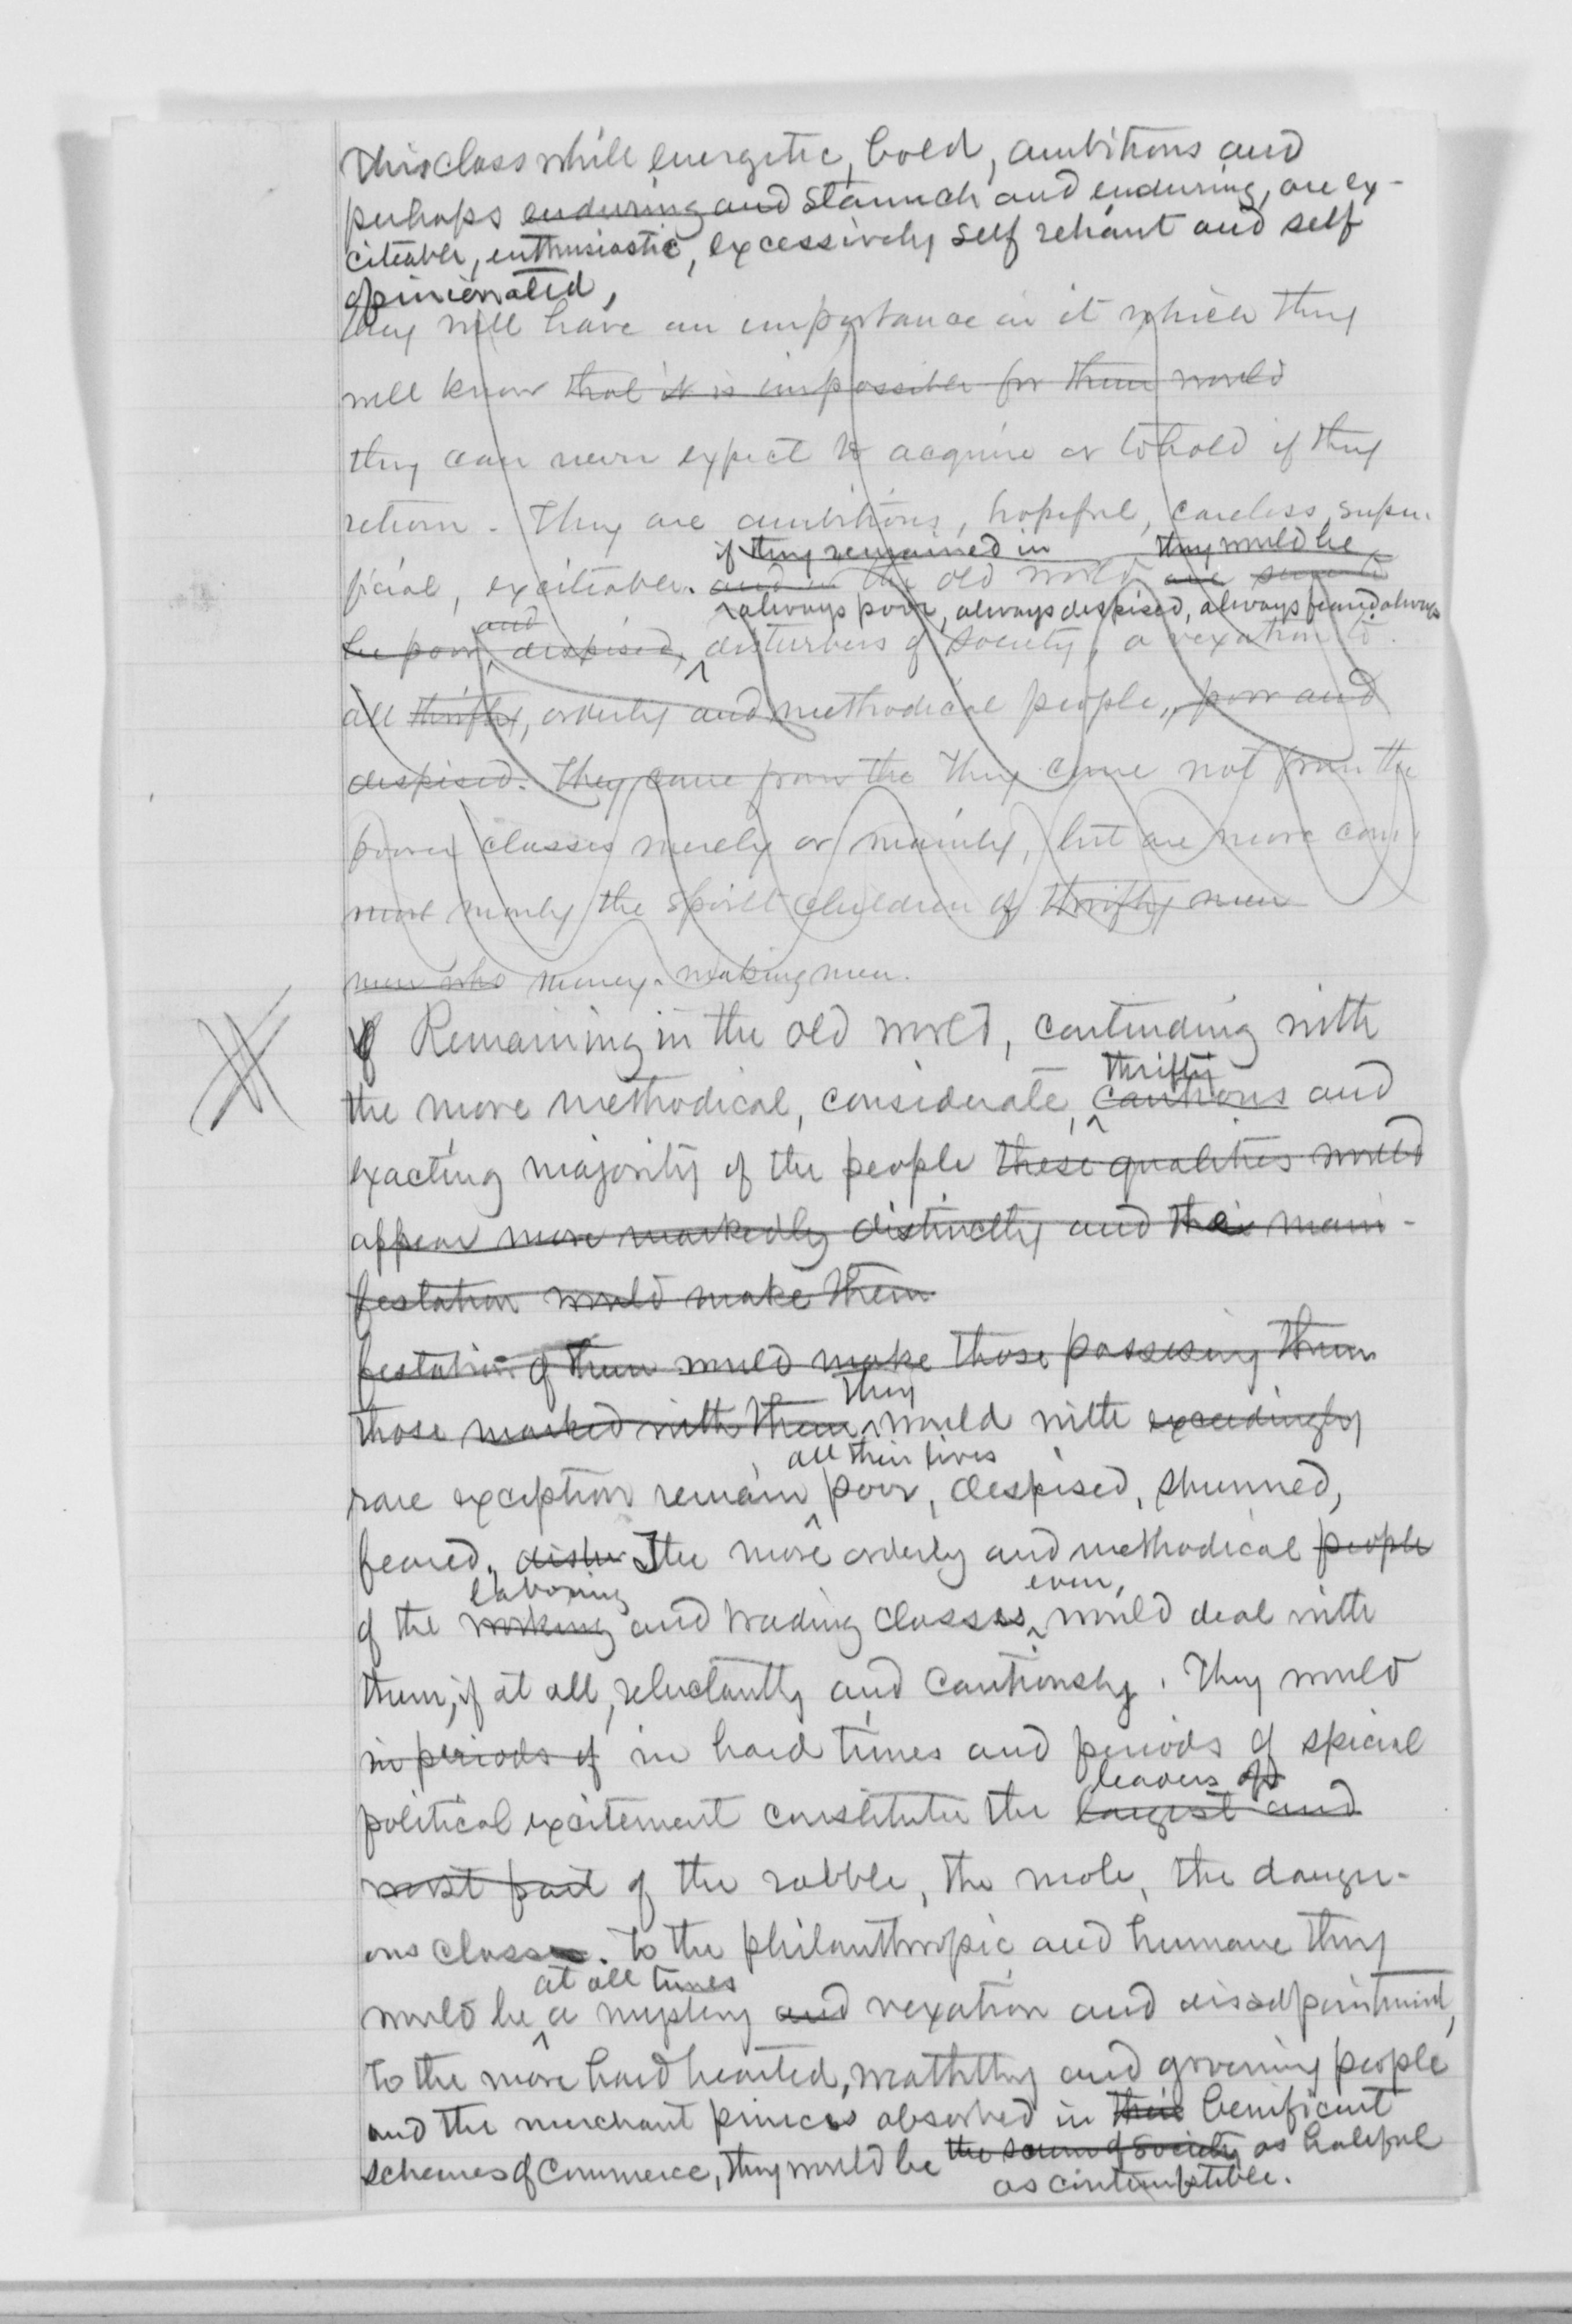 This class while energetic, bold, ambitious and
perhaps enduring and staunch and enduring, are ex-
citeable, enthusiastic, excessively self reliant and self
opinionated,
they will have an importance in it which they
well know that it is impossible for them would
they can never expect to acquire or to hold if they
return. They are ambitious, hopeful, careless, super
if they remained in they would be
ficial, exciteable. and in the old world are
always poor, always despised, always feared always
and
be poor, despised, disturbers of society, a vexation to
all thrifty, orderly and methodical people, poor and
despised. They came from the They come not from the
poorer classes merely or mainly, but are more com
most monly the spoilt children of thrifty men
men who money-making men.
If Remaining in the old world, contending with
thrifty
the more methodical, considerate, cautious and
exacting majority of the people these qualities would
appear more markedly distinctly and their mani-
festation would make them
festation of them would make those possesing them
They
those marked with them would with exceedingly
all their lives
rare exception remain poor, despised, shunned,
feared, distur The more orderly and methodical people
laboring even,
of the working and trading classes would deal with
them, if at all, reluctantly and cautiously. They would
in periods of in hard times and periods of special
leaders of
political excitement constitute the largest and
most part of the rabble, the mob, the danger-
ous classes. To the philanthropic and humane they
at all times
would be a mystery and vexation and disadpointment,
to the more hard hearted, weathlthy and governing people
and the merchant princes absorbed in their benificent
schemes of commerce, they would be the scum of society as hateful
as contemptible.